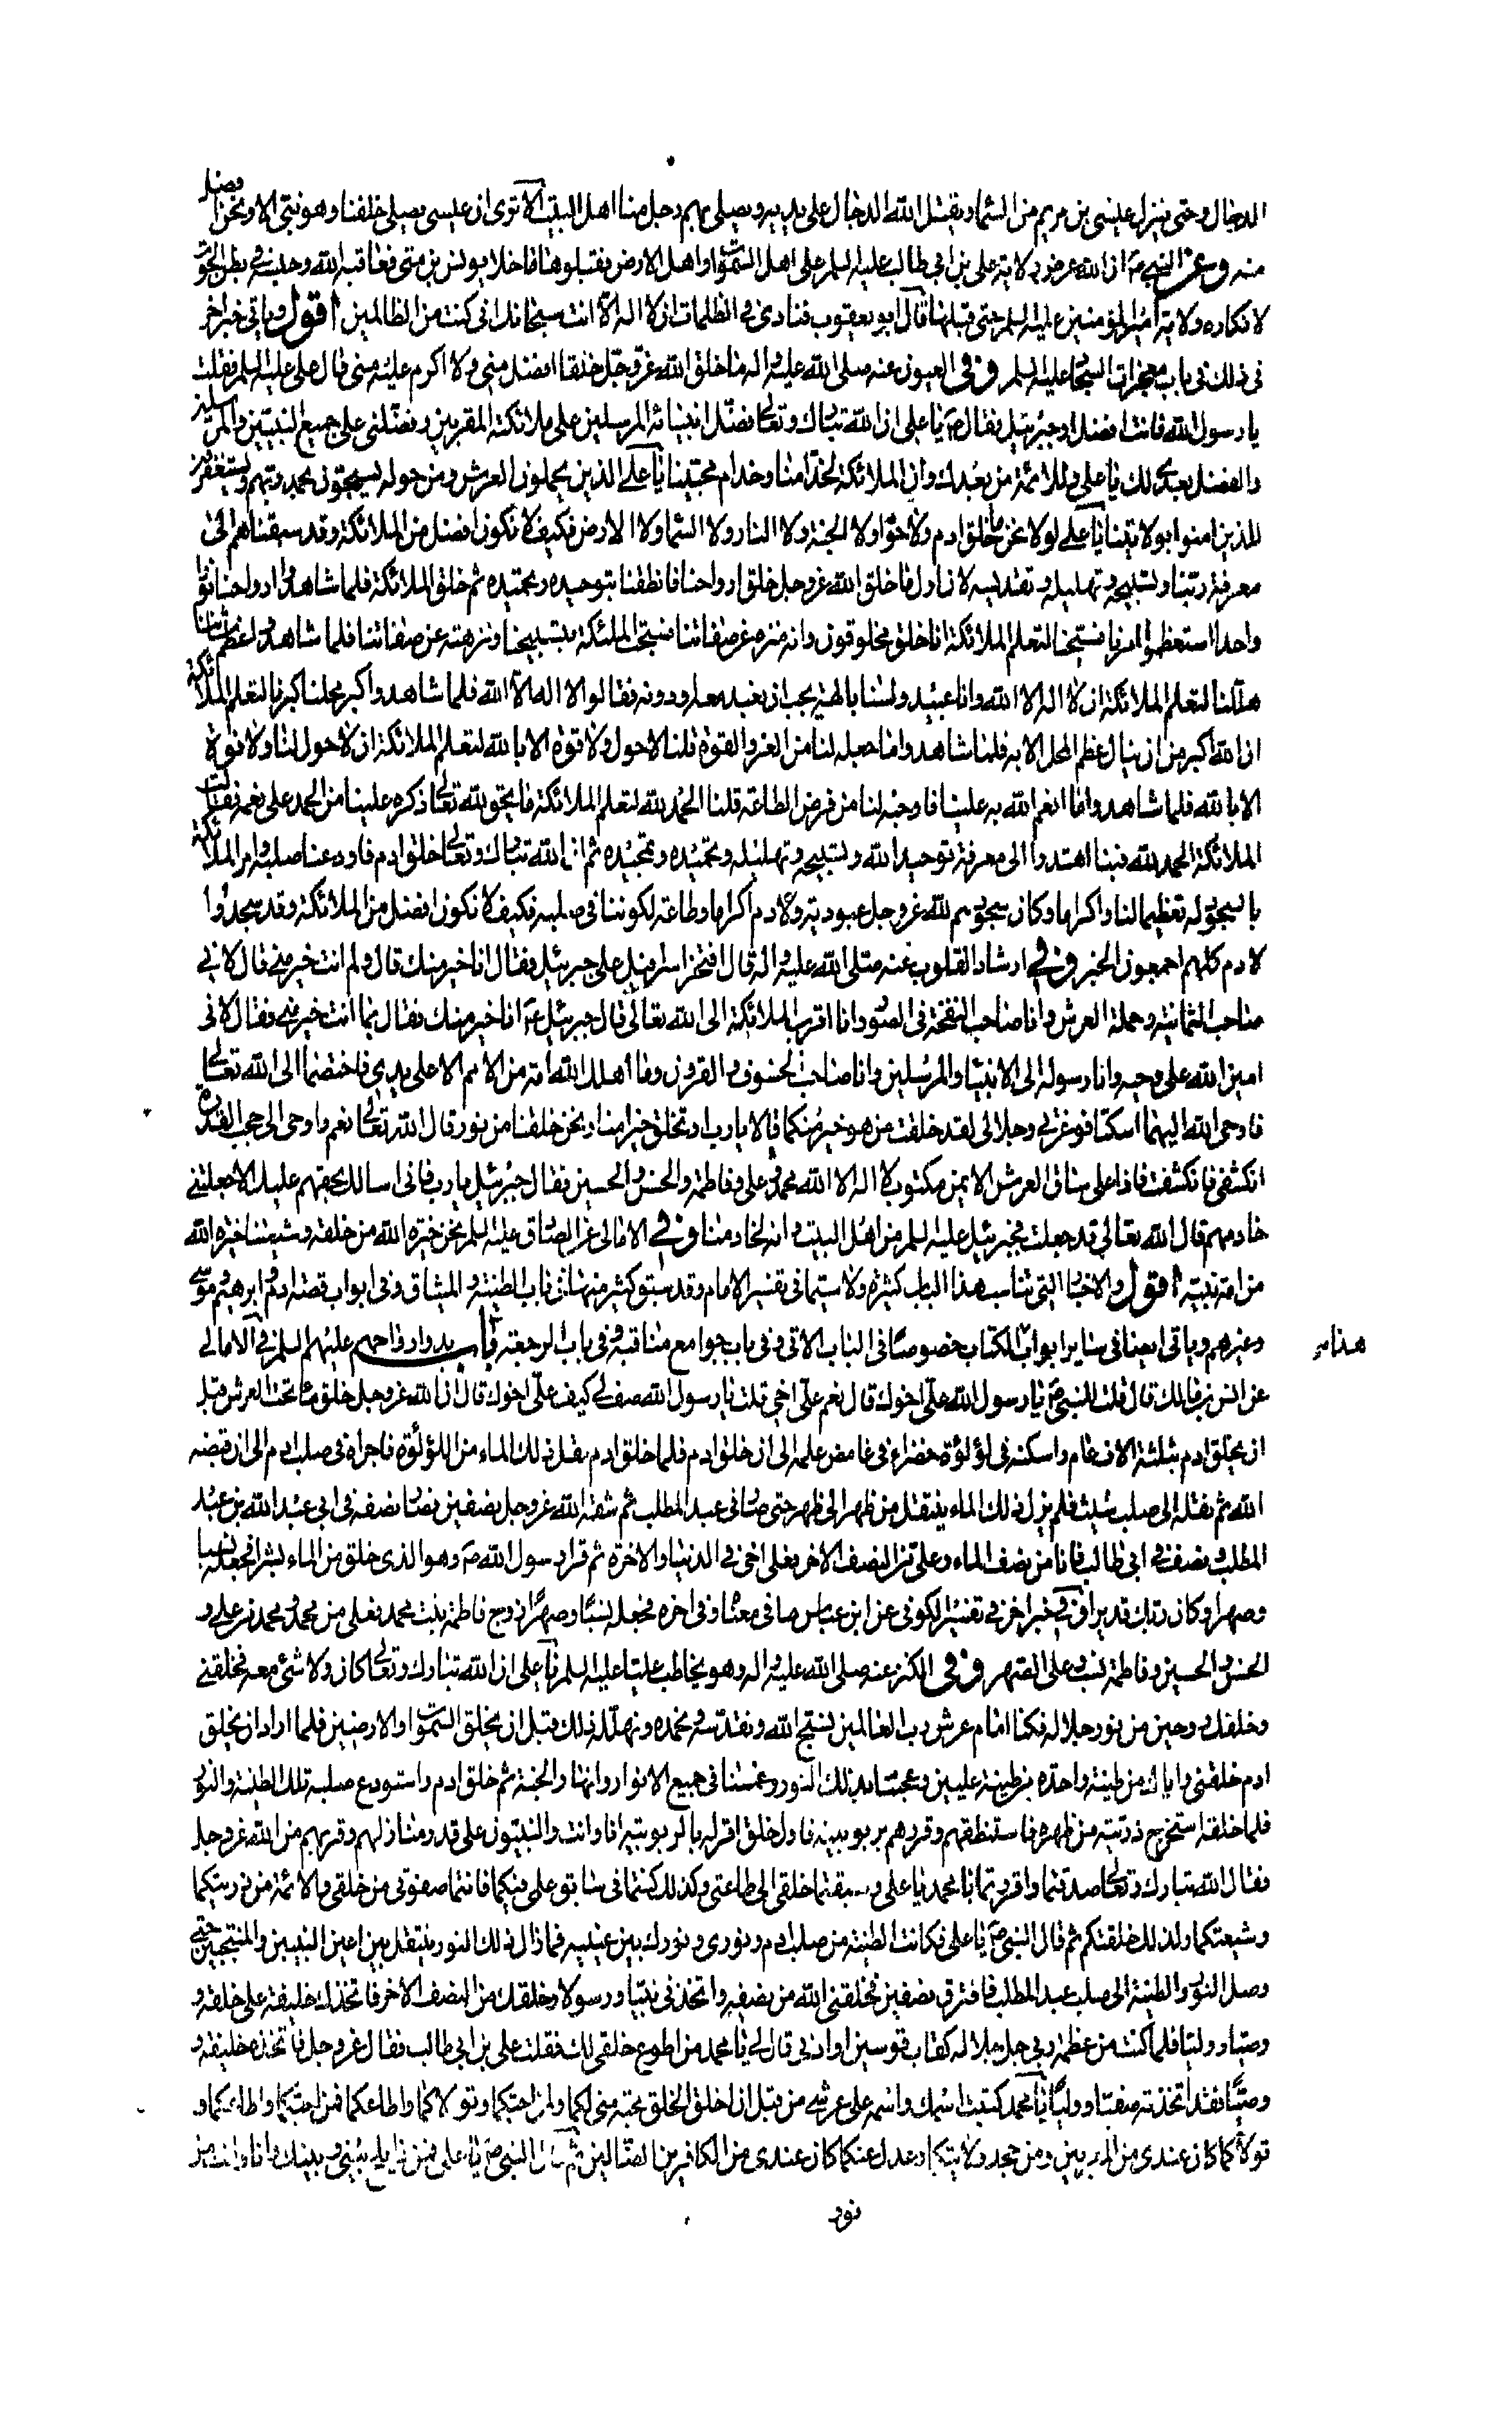 الدجال وحتى ينزل عيسى بن مريم من السماء ويقتل الله الدجال على يديه ويصلي بهم رجل منا اهل البيت الا ترى ان عيسى يصلي خلفنا وهو نبي الا ونحن افضل
منه وعن النبي ص ان الله عرض ولاية علي بن ابي طالب عليه السلم على اهل السموات واهل الارض فقبلوها ما خلا يونس بن متى فعاقبه الله وحبسه في بطن الحوت
لانكاره ولاية امير المؤمنين عليه السلم حتى قبلها قال ابو يعقوب فنادى في الظلمات ان لا اله الا انت سبحانك اني كنت من الظالمين اقول وياتي خبر اخر
في ذلك في باب معجزات السجاد عليه السلم وفي العيون عنه صلى الله عليه واله ما خلق الله عز وجل خلقا افضل مني ولا اكرم عليه مني قال علي عليه السلم فقلت
يا رسول الله فانت افضل او جبرئيل فقال ص يا علي ان الله تبارك وتعالى فضل انبيائه المرسلين على ملائكته المقربين وفضلني على جميع النبيين والمرسلين
والفضل بعدي لك يا علي وللائمة من بعدك وان الملائكة لخدامنا وخدام محبينا يا علي الذين يحملون العرش ومن حوله يسبحون بحمد ربهم ويستغفرون
للذين امنوا بولايتنا يا علي لولا نحن ما خلق ادم ولا حوا ولا الجنة ولا النار ولا السماء ولا الارض فكيف لا نكون افضل من الملائكة وقد سبقناهم الى
معرفة ربنا وتسبيحه وتهليله وتقديسه لان اول ما خلق الله عز وجل خلق ارواحنا فانطقنا بتوحيده وتحميده ثم خلق الملائكة فلما شاهدوا ارواحنا نورا
واحدا استعظموا امرنا فسبحنا لتعلم الملائكة انا خلق مخلوقون وانه منزه عن صفاتنا فسبحت الملئكة بتسبيحنا ونزهته عن صفاتنا فلما شاهدوا عظم شاننا
هللنا لتعلم الملائكة ان لا اله الا الله وانا عبيد ولسنا بالهة يجب ان نعبد معه او دونه فقالوا لا اله الا الله فلما شاهدوا كبر محلنا كبرنا لتعلم الملائكة
ان الله اكبر من ان ينال عظم المحل الا به فلما شاهدوا ما جعله لنا من العز والقوة قلنا لا حول ولا قوة الا بالله لتعلم الملائكة ان لا حول لنا ولا قوة
الا بالله فلما شاهدوا ما انعم الله به علينا واوجبه لنا من فرض الطاعة قلنا الحمد لله لتعلم الملائكة ما يحق لله تعالى ذكره علينا من الحمد على نعمه فقالت
الملائكة الحمد لله فبنا اهتدوا الى معرفة توحيد الله وتسبيحه وتهليله وتحميده وتمجيده ثم ان الله تبارك وتعالى خلق ادم فاودعنا صلبه وامر الملائكة
بالسجود له تعظيما لنا واكراما وكان سجودهم لله عز وجل عبودية ولادم اكراما وطاعة لكوننا في صلبه فكيف لا نكون افضل من الملائكة وقد سجدوا
لادم كلهم اجمعون الخبر وفي ارشاد القلوب عنه صلى الله عليه واله قال افتخر اسرافيل على جبرئيل فقال انا خير منك قال ولم انت خير مني قال لاني
صاحب الثمانية وحملة العرش وانا صاحب النفخة في الصور وانا اقرب الملائكة الى الله تعالى قال جبرئيل ع انا خير منك فقال بما انت خير مني فقال لاني
امين الله على وحيه وانا رسوله الى الانبياء والمرسلين وانا صاحب الخسوف والقرون وما اهلك الله امة من الامم الا على يدي فاختصما الى الله تعالى
فاوحى الله اليهما اسكتا فوعزتي وجلالي لقد خلقت من هو خير منكما قالا يا رب او تخلق خيرا منا ونحن خلقنا من نور قال الله تعالى نعم واوحى الى حجب القدرة
انكشفي فانكشفت فاذا على ساق العرش الايمن مكتوب لا اله الا الله محمد وعلي وفاطمة والحسن والحسين فقال جبرئيل يا رب فاني اسالك بحقهم عليك الا جعلتني
خادمهم قال الله تعالى قد جعلت فجبرئيل عليه السلم من اهل البيت وانه لخادمنا وفي الامالي عن الصادق عليه السلم نحن خيرة الله من خلقه وشيعتنا خيرة الله
من امة نبيه اقول والاخبار التي تناسب هذا الباب كثيرة ولا سيما في تفسير الامام وقد سبق كثير منها في باب الطينة والميثاق وفي ابواب قصة ادم وابرهيم وموسى
وغيرهم وياتي ايضا في ساير ابواب الكتاب خصوصا في الباب الاتي وفي باب جوامع مناقبه وفي باب الرجعة باب بدو ارواحهم عليهم السلم في الامالي
هذا ص
عن انس بن مالك قال قلت للنبي ص يا رسول الله علي اخوك قال نعم علي اخي قلت يا رسول الله صف لي كيف علي اخوك قال ان الله عز وجل خلق ماء تحت العرش قبل
ان يخلق ادم بثلثة الاف عام واسكنه في لؤلؤة خضراء في غامض علمه الى ان خلق ادم فلما خلق ادم نقل ذلك الماء من اللؤلؤة فاجراه في صلب ادم الى ان قبضه
الله ثم نقله الى صلب شيث فلم يزل ذلك الماء ينتقل من ظهر الى ظهر حتى صار في عبد المطلب ثم شقه الله عز وجل بنصفين فصار نصفه في ابي عبد الله بن عبد
المطلب ونصف في ابي طالب فانا من نصف الماء وعلي من النصف الاخر فعلي اخي في الدنيا والاخرة ثم قرا رسول الله ص وهو الذي خلق من الماء بشرا فجعله نسبا
وصهرا وكان ربك قديرا وفي خبر اخر في تفسير الكوفي عن ابن عباس ما في معناه وفي اخره فجعله نسبا وصهرا زوج فاطمة بنت محمد فعلي من محمد ومحمد من علي و
الحسن والحسين وفاطمة نسب وعلي الصهر وفي الكنز عنه صلى الله عليه واله وهو يخاطب عليا عليه السلم يا علي ان الله تبارك وتعالى كان ولا شئ معه فخلقني
وخلقك روحين من نور جلاله فكنا امام عرش رب العالمين نسبح الله ونقدسه ونحمده ونهلله وذلك قبل ان يخلق السموات والارضين فلما اراد ان يخلق
ادم خلقني واياك من طينة واحدة من طينة عليين وعجننا بذلك النور وغمسنا في جميع الانوار وانهار الجنة ثم خلق ادم واستودع صلبه تلك الطينة والنور
فلما خلقه استخرج ذريته من ظهره فاستنطقهم وقررهم بربوبيته فاول خلق اقر له بالربوبية انا وانت والنبيون على قدر منازلهم وقربهم من الله عز وجل
فقال الله تبارك وتعالى صدقتما واقررتما يا محمد ويا علي وسبقتما خلقي الى طاعتي وكذلك كنتما في سابق علمي فيكما فانتما صفوتي من خلقي والائمة من ذريتكما
وشيعتكما ولذلك خلقتكم ثم قال النبي ص يا علي فكانت الطينة من صلب ادم ونوري ونورك بين عينيه فما زال ذلك النور ينتقل بين اعين النبيين والمنتجبين حتى
وصل النور والطينة الى صلب عبد المطلب فافترق نصفين فخلقني الله من نصفه واتخذني نبيا ورسولا وخلقك من النصف الاخر فاتخذك خليفة على خلقه و
وصيا ووليا فلما كنت من عظمة ربي جل جلاله كقاب قوسين او ادنى قال لي يا محمد من اطوع خلقي لك فقلت علي بن ابي طالب فقال عز وجل فاتخذه خليفة و
وصيا فقد اتخذته صفيا ووليا يا محمد كتبت اسمك واسمه على عرشي من قبل ان اخلق الخلق محبة مني لكما ولمن احبكما وتولاكما واطاعكما فمن احبكما واطاعكما و
تولاكما كان عندي من المقربين ومن جحد ولايتكما وعدل عنكما كان عندي من الكافرين الضالين ثم قال النبي ص يا علي فمن ذا يلج بيني وبينك وانا وانت من
نور